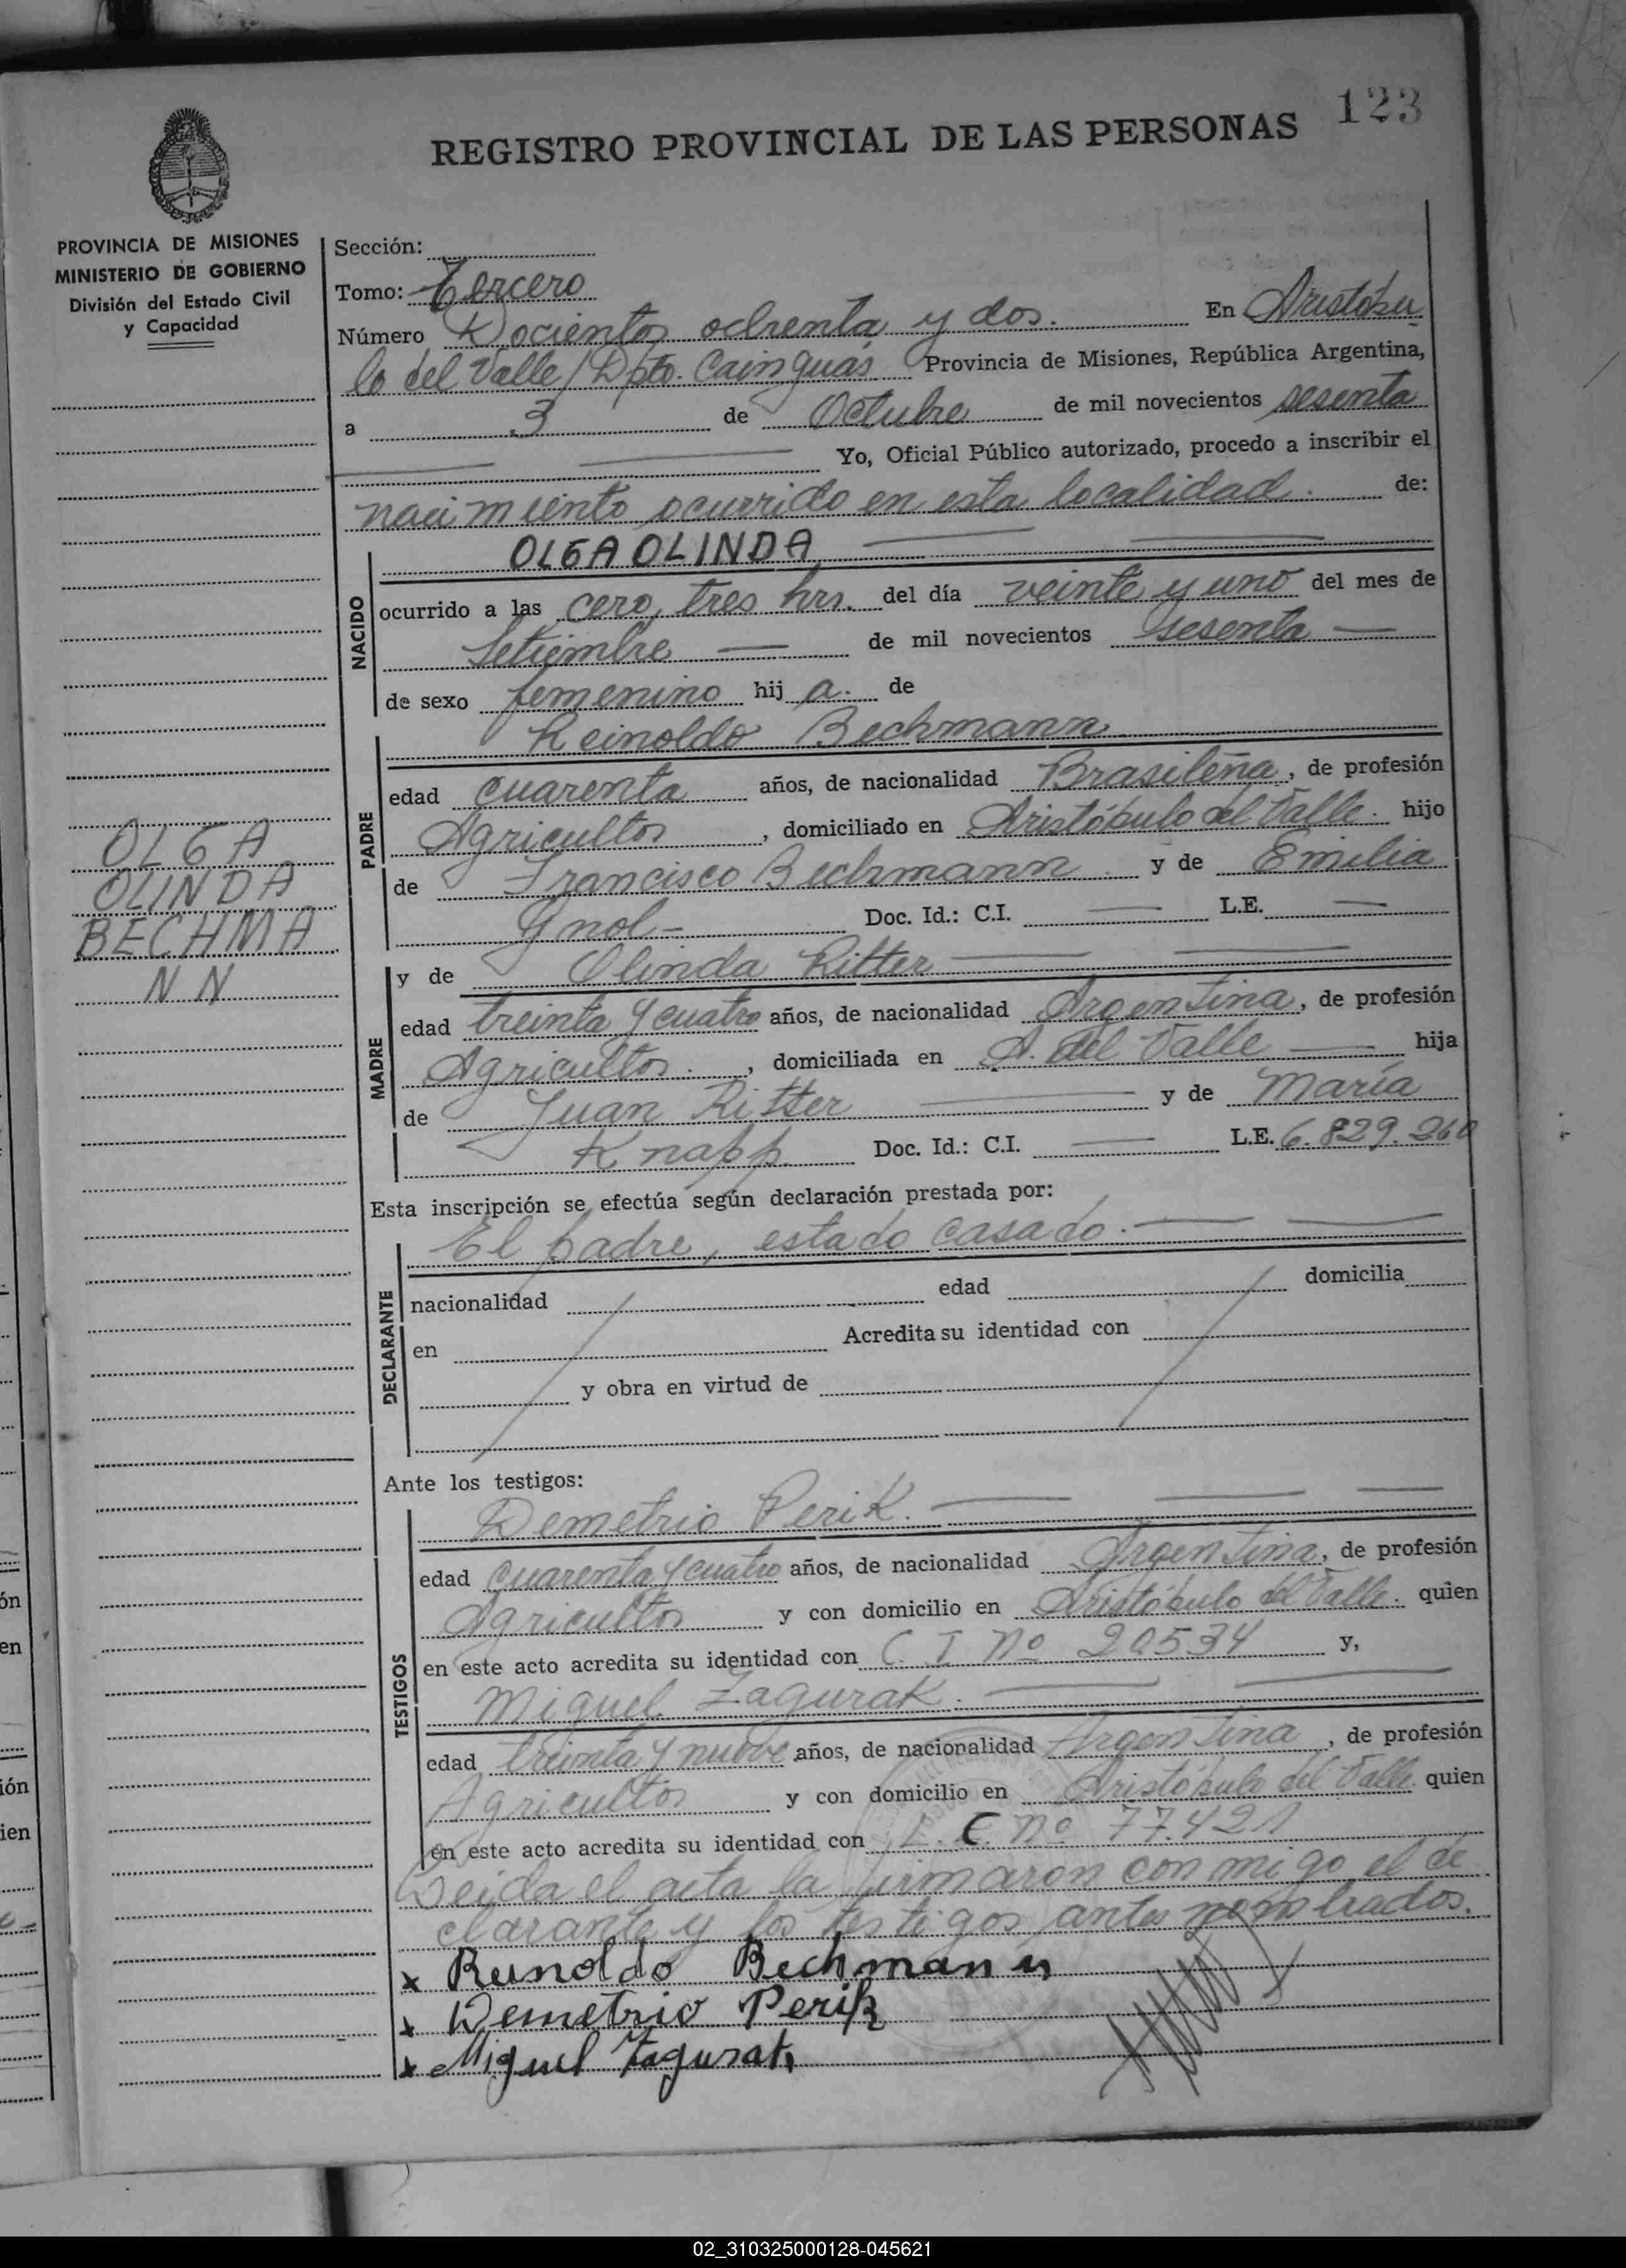 123
REGISTRO PROVINCIAL DE LAS PERSONAS
PROVINCIA DE MISIONES
MINISTERIO DE GOBIERNO
División del Estado Civil
y Capacidad
Sección:
Tomo: Tercero
Número Docientos ochenta y dos. En Aristóbu
lo del Valle/Dpto. Cainguás Provincia de Misiones, República Argentina,
a 3 de Octubre de mil novecientos sesenta
Yo, Oficial Público autorizado, procedo a inscribir el
nacimiento ocurrido en esta localidad. de:
NACIDO
OLGA OLINDA
ocurrido a las cero, tres hrs. del día veinte y uno del mes de
Setiembre — de mil novecientos sesenta —
de sexo femenino hij a. de
PADRE
Reinoldo Bechmann
edad cuarenta años, de nacionalidad Brasileña, de profesión
Agricultor, domiciliado en Aristóbulo del Valle. hijo
de Francisco Bechmann y de Emilia
Ynol - Doc. Id.: C.I. — L.E. —
MADRE
y de Olinda Ritter
edad treinta y cuatro años, de nacionalidad Argentina, de profesión
Agricultor., domiciliada en A. del Valle — hija
de Juan Ritter y de María
Knapp Doc. Id.: C.I. — L.E. 6.829.260
Esta inscripción se efectúa según declaración prestada por:
DECLARANTE
El padre, estado casado.
nacionalidad edad domicilia
en Acredita su identidad con
y obra en virtud de
Ante los testigos:
TESTIGOS
Demetrio Perik.
edad cuarenta y cuatro años, de nacionalidad Argentina, de profesión
Agricultor y con domicilio en Aristóbulo del Valle. quien
en este acto acredita su identidad con C. I Nº 20534 y,
Miguel Zagurak.
edad treinta y nueve años, de nacionalidad Argentina, de profesión
Agricultor y con domicilio en Aristóbulo del Valle. quien
en este acto acredita su identidad con C. nº 77.421
Leida el acta la firmaron conmigo el de
clarante y los testigos antes nombrados.
x Reinoldo Bechmann
x Demetrio Perik
x Miguel Zagurak
OLGA
OLINDA
BECHMA
NN
02_310325000128-045621